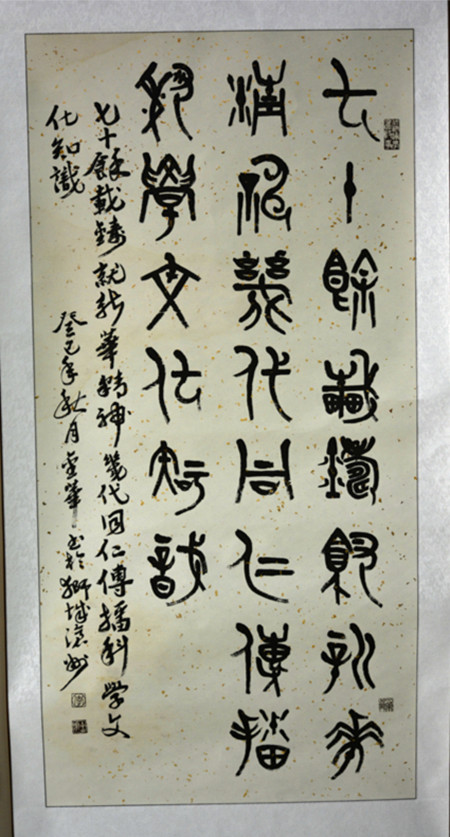 七十餘載鑄就新華
精神幾代同仁傳播
科學文化知識
七十餘載鑄就新華精神幾代同仁傳播科學文
化知識
癸巳年秋月華书於獅城滄州